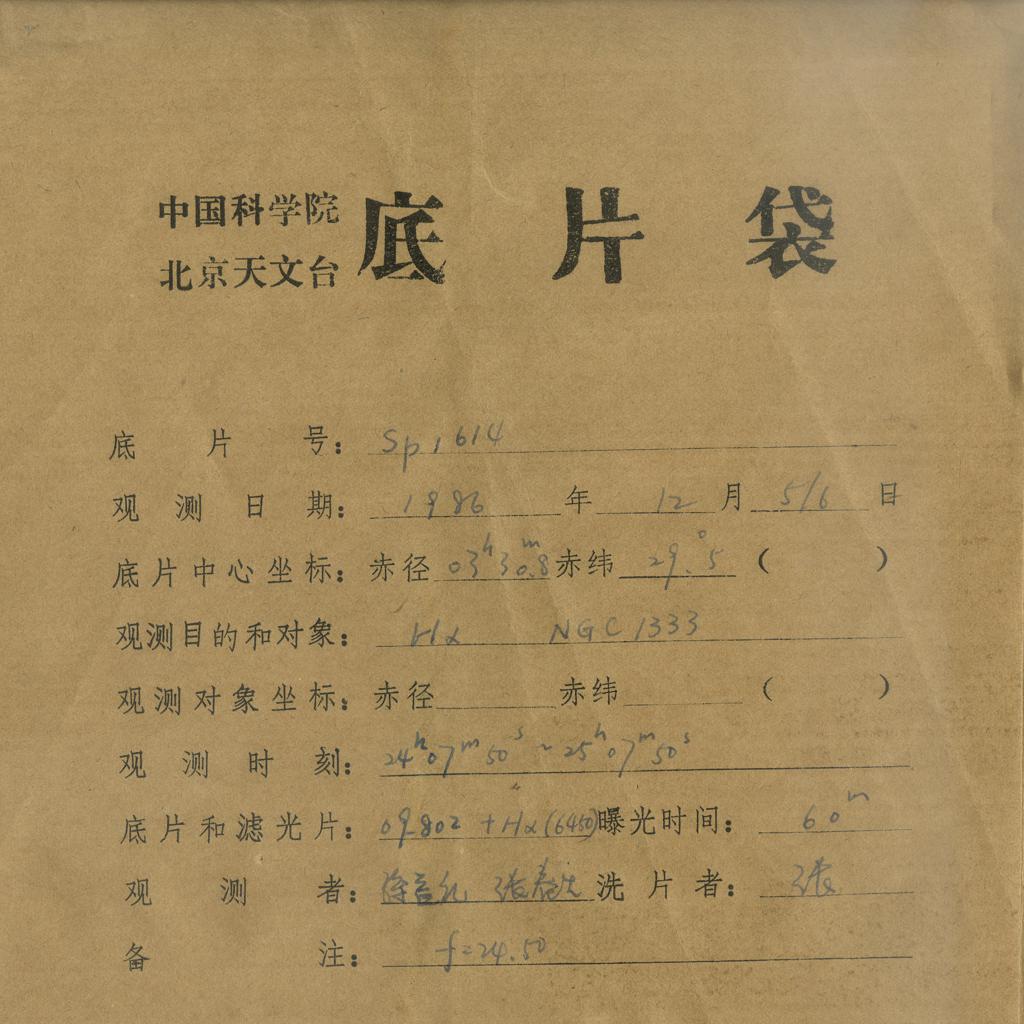 中国科学院
北京天文台
底片袋
底片号: Sp1614
观测日期: 1986年12月5/6日
底片中心坐标: 赤径 03h30m.8 赤纬 29°.5 ( )
观测目的和对象: Hα NGC 1333
观测对象坐标: 赤径 赤纬 ( )
观测时刻: 24h07m50s ~ 25h07m50s
底片和滤光片: 09802 + Hα(6450) 曝光时间: 60m
观测者: 张春生 洗片者: 张
备注: f=24.50